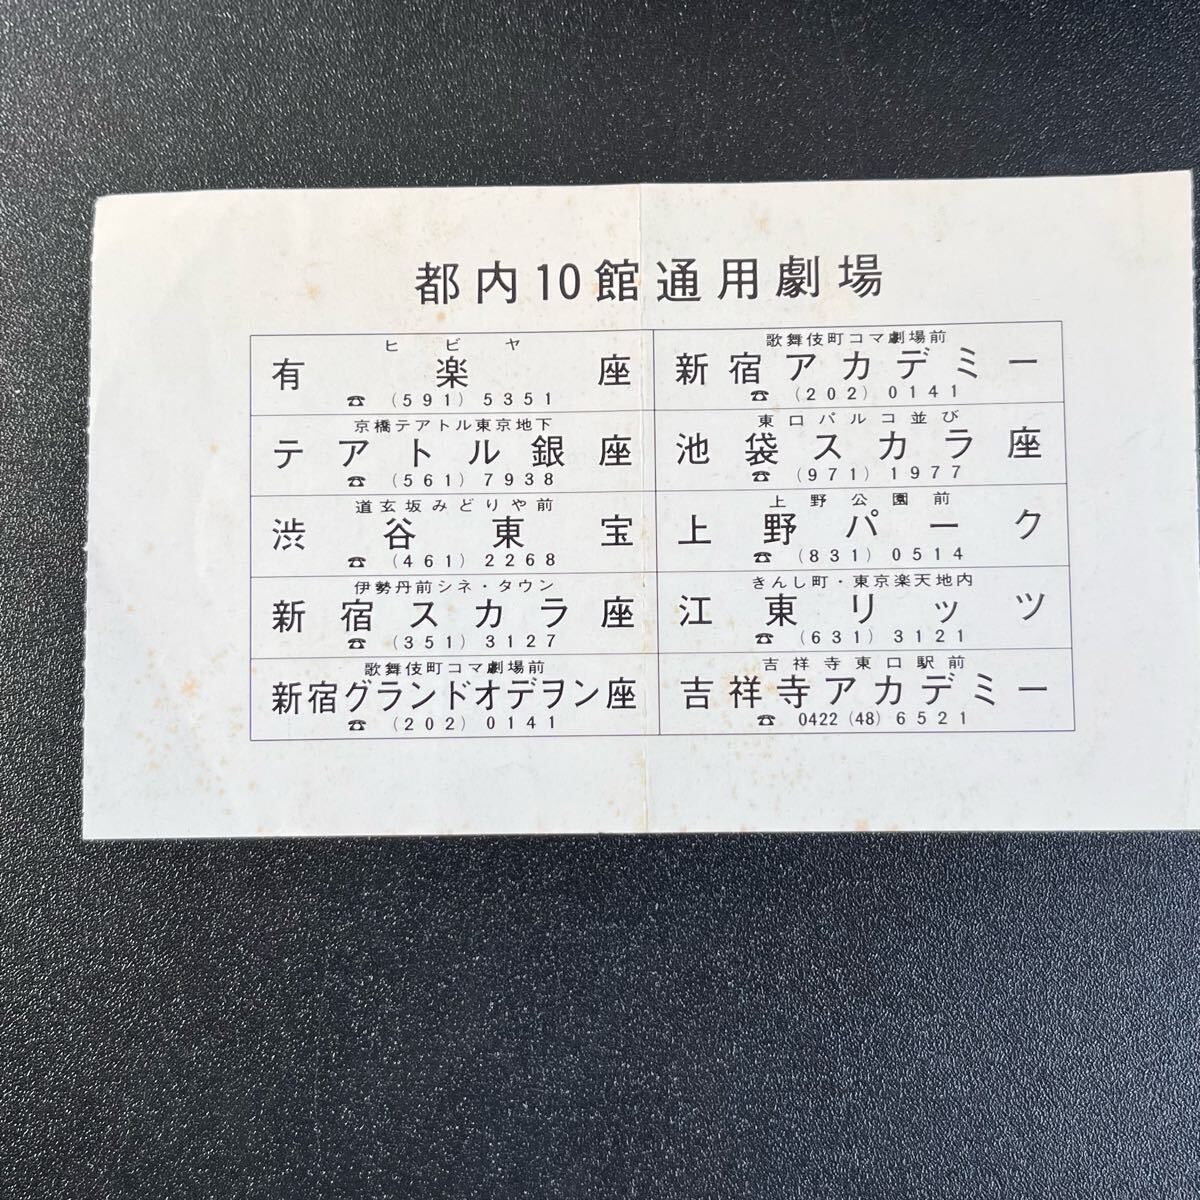 都内10館通用劇場
ヒビヤ
有楽座
☎ (591) 5351
京橋テアトル東京地下
テアトル銀座
☎ (561) 7938
道玄坂みどりや前
渋谷東宝
☎ (461) 2268
伊勢丹前シネ・タウン
新宿スカラ座
☎ (351) 3127
歌舞伎町コマ劇場前
新宿グランドオデヲン座
☎ (202) 0141
歌舞伎町コマ劇場前
新宿アカデミー
☎ (202) 0141
東口パルコ並び
池袋スカラ座
☎ (971) 1977
上野公園前
上野パーク
☎ (831) 0514
きんし町・東京楽天地内
江東リッツ
☎ (631) 3121
吉祥寺東口駅前
吉祥寺アカデミー
☎ 0422 (48) 6521